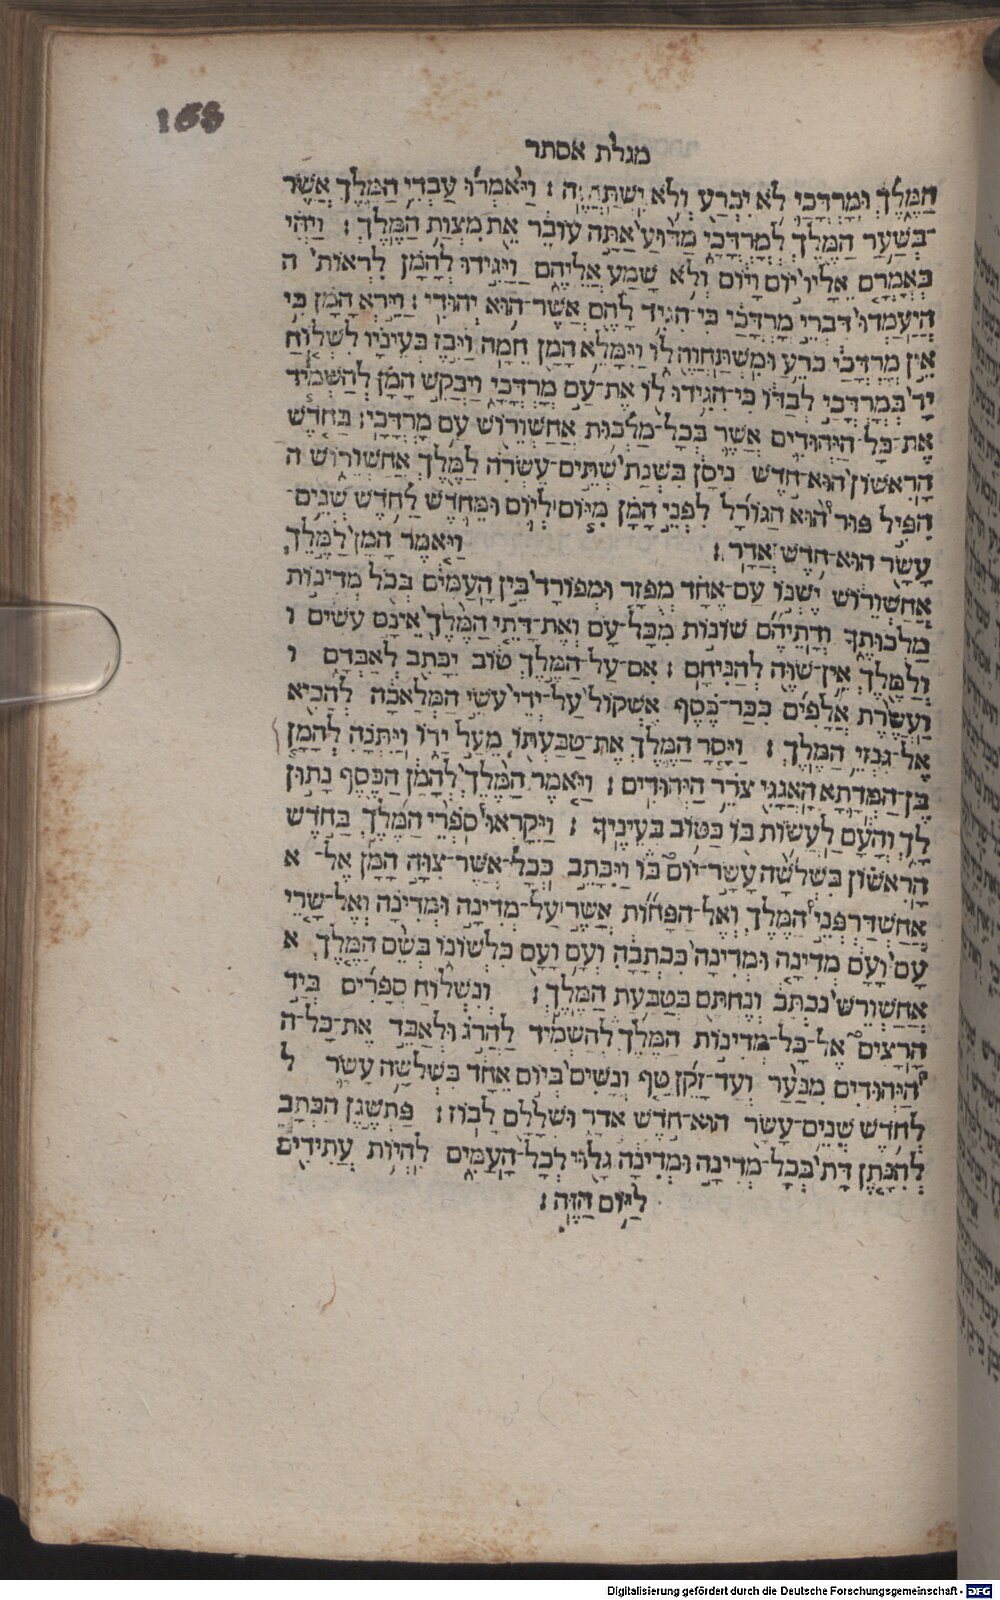 163
מגלת אסתר
הַמֶּלֶךְ וּמָרְדֳּכַי לֹא יִכְרַע וְלֹא יִשְׁתַּחֲוֶה׃ וַיֹּאמְרוּ עַבְדֵי הַמֶּלֶךְ אֲשֶׁר
־בְּשַׁעַר הַמֶּלֶךְ לְמָרְדֳּכָי מַדּוּעַ אַתָּה עוֹבֵר אֵת מִצְוַת הַמֶּלֶךְ׃ וַיְהִי
בְּאָמְרָם אֵלָיו יוֹם וָיוֹם וְלֹא שָׁמַע אֲלֵיהֶם וַיַּגִּידוּ לְהָמָן לִרְאוֹת ה
הֲיַעַמְדוּ דִּבְרֵי מָרְדֳּכַי כִּי־הִגִּיד לָהֶם אֲשֶׁר־הוּא יְהוּדִי׃ וַיַּרְא הָמָן כִּי
אֵין מָרְדֳּכַי כֹּרֵעַ וּמִשְׁתַּחֲוֶה לוֹ וַיִּמָּלֵא הָמָן חֵמָה וַיִּבֶז בְּעֵינָיו לִשְׁלוֹחַ
יָד בְּמָרְדֳּכַי לְבַדּוֹ כִּי־הִגִּידוּ לוֹ אֶת־עַם מָרְדֳּכָי וַיְבַקֵּשׁ הָמָן לְהַשְׁמִיד
אֶת־כָּל־הַיְּהוּדִים אֲשֶׁר בְּכָל־מַלְכוּת אֲחַשְׁוֵרוֹשׁ עַם מָרְדֳּכָי׃ בַּחֹדֶשׁ
הָרִאשׁוֹן הוּא־חֹדֶשׁ נִיסָן בִּשְׁנַת שְׁתֵּים־עֶשְׂרֵה לַמֶּלֶךְ אֲחַשְׁוֵרוֹשׁ ה
הִפִּיל פּוּר הוּא הַגּוֹרָל לִפְנֵי הָמָן מִיּוֹם לְיוֹם וּמֵחֹדֶשׁ לְחֹדֶשׁ שְׁנֵים־
עָשָׂר הוּא־חֹדֶשׁ אֲדָר׃ וַיֹּאמֶר הָמָן לַמֶּלֶךְ
אֲחַשְׁוֵרוֹשׁ יֶשְׁנוֹ עַם־אֶחָד מְפֻזָּר וּמְפוֹרָד בֵּין הָעַמִּים בְּכֹל מְדִינוֹת
מַלְכוּתֶךָ וְדָתֵיהֶם שׁוֹנוֹת מִכָּל־עָם וְאֶת־דָּתֵי הַמֶּלֶךְ אֵינָם עֹשִׂים ו
וְלַמֶּלֶךְ אֵין־שֹׁוֶה לְהַנִּיחָם׃ אִם־עַל־הַמֶּלֶךְ טוֹב יִכָּתֵב לְאַבְּדָם ו
וַעֲשֶׂרֶת אֲלָפִים כִּכַּר־כֶּסֶף אֶשְׁקוֹל עַל־יְדֵי עֹשֵׂי הַמְּלָאכָה לְהָבִיא
אֶל־גִּנְזֵי הַמֶּלֶךְ׃ וַיָּסַר הַמֶּלֶךְ אֶת־טַבַּעְתּוֹ מֵעַל יָדוֹ וַיִּתְּנָהּ לְהָמָן
בֶּן־הַמְּדָתָא הָאֲגָגִי צֹרֵר הַיְּהוּדִים׃ וַיֹּאמֶר הַמֶּלֶךְ לְהָמָן הַכֶּסֶף נָתוּן
לָךְ וְהָעָם לַעֲשׂוֹת בּוֹ כַּטּוֹב בְּעֵינֶיךָ׃ וַיִּקָּרְאוּ סֹפְרֵי הַמֶּלֶךְ בַּחֹדֶשׁ
הָרִאשׁוֹן בִּשְׁלֹשָׁה עָשָׂר־יוֹם בּוֹ וַיִּכָּתֵב כְּכָל־אֲשֶׁר־צִוָּה הָמָן אֶל־ א
אֲחַשְׁדַּרְפְּנֵי הַמֶּלֶךְ וְאֶל־הַפַּחוֹת אֲשֶׁר עַל־מְדִינָה וּמְדִינָה וְאֶל־שָׂרֵי
עַם וָעָם מְדִינָה וּמְדִינָה כִּכְתָבָהּ וְעַם וָעָם כִּלְשׁוֹנוֹ בְּשֵׁם הַמֶּלֶךְ א
אֲחַשְׁוֵרֹשׁ נִכְתָּב וְנֶחְתָּם בְּטַבַּעַת הַמֶּלֶךְ׃ וְנִשְׁלוֹחַ סְפָרִים בְּיַד
הָרָצִים אֶל־כָּל־מְדִינוֹת הַמֶּלֶךְ לְהַשְׁמִיד לַהֲרֹג וּלְאַבֵּד אֶת־כָּל־ה
הַיְּהוּדִים מִנַּעַר וְעַד־זָקֵן טַף וְנָשִׁים בְּיוֹם אֶחָד בִּשְׁלֹשָׁה עָשָׂר ל
לְחֹדֶשׁ שְׁנֵים־עָשָׂר הוּא־חֹדֶשׁ אֲדָר וּשְׁלָלָם לָבוֹז׃ פַּתְשֶׁגֶן הַכְּתָב
לְהִנָּתֵן דָּת בְּכָל־מְדִינָה וּמְדִינָה גָּלוּי לְכָל־הָעַמִּים לִהְיוֹת עֲתִידִים
לַיּוֹם הַזֶּה׃
Digitalisierung gefördert durch die Deutsche Forschungsgemeinschaft - DFG